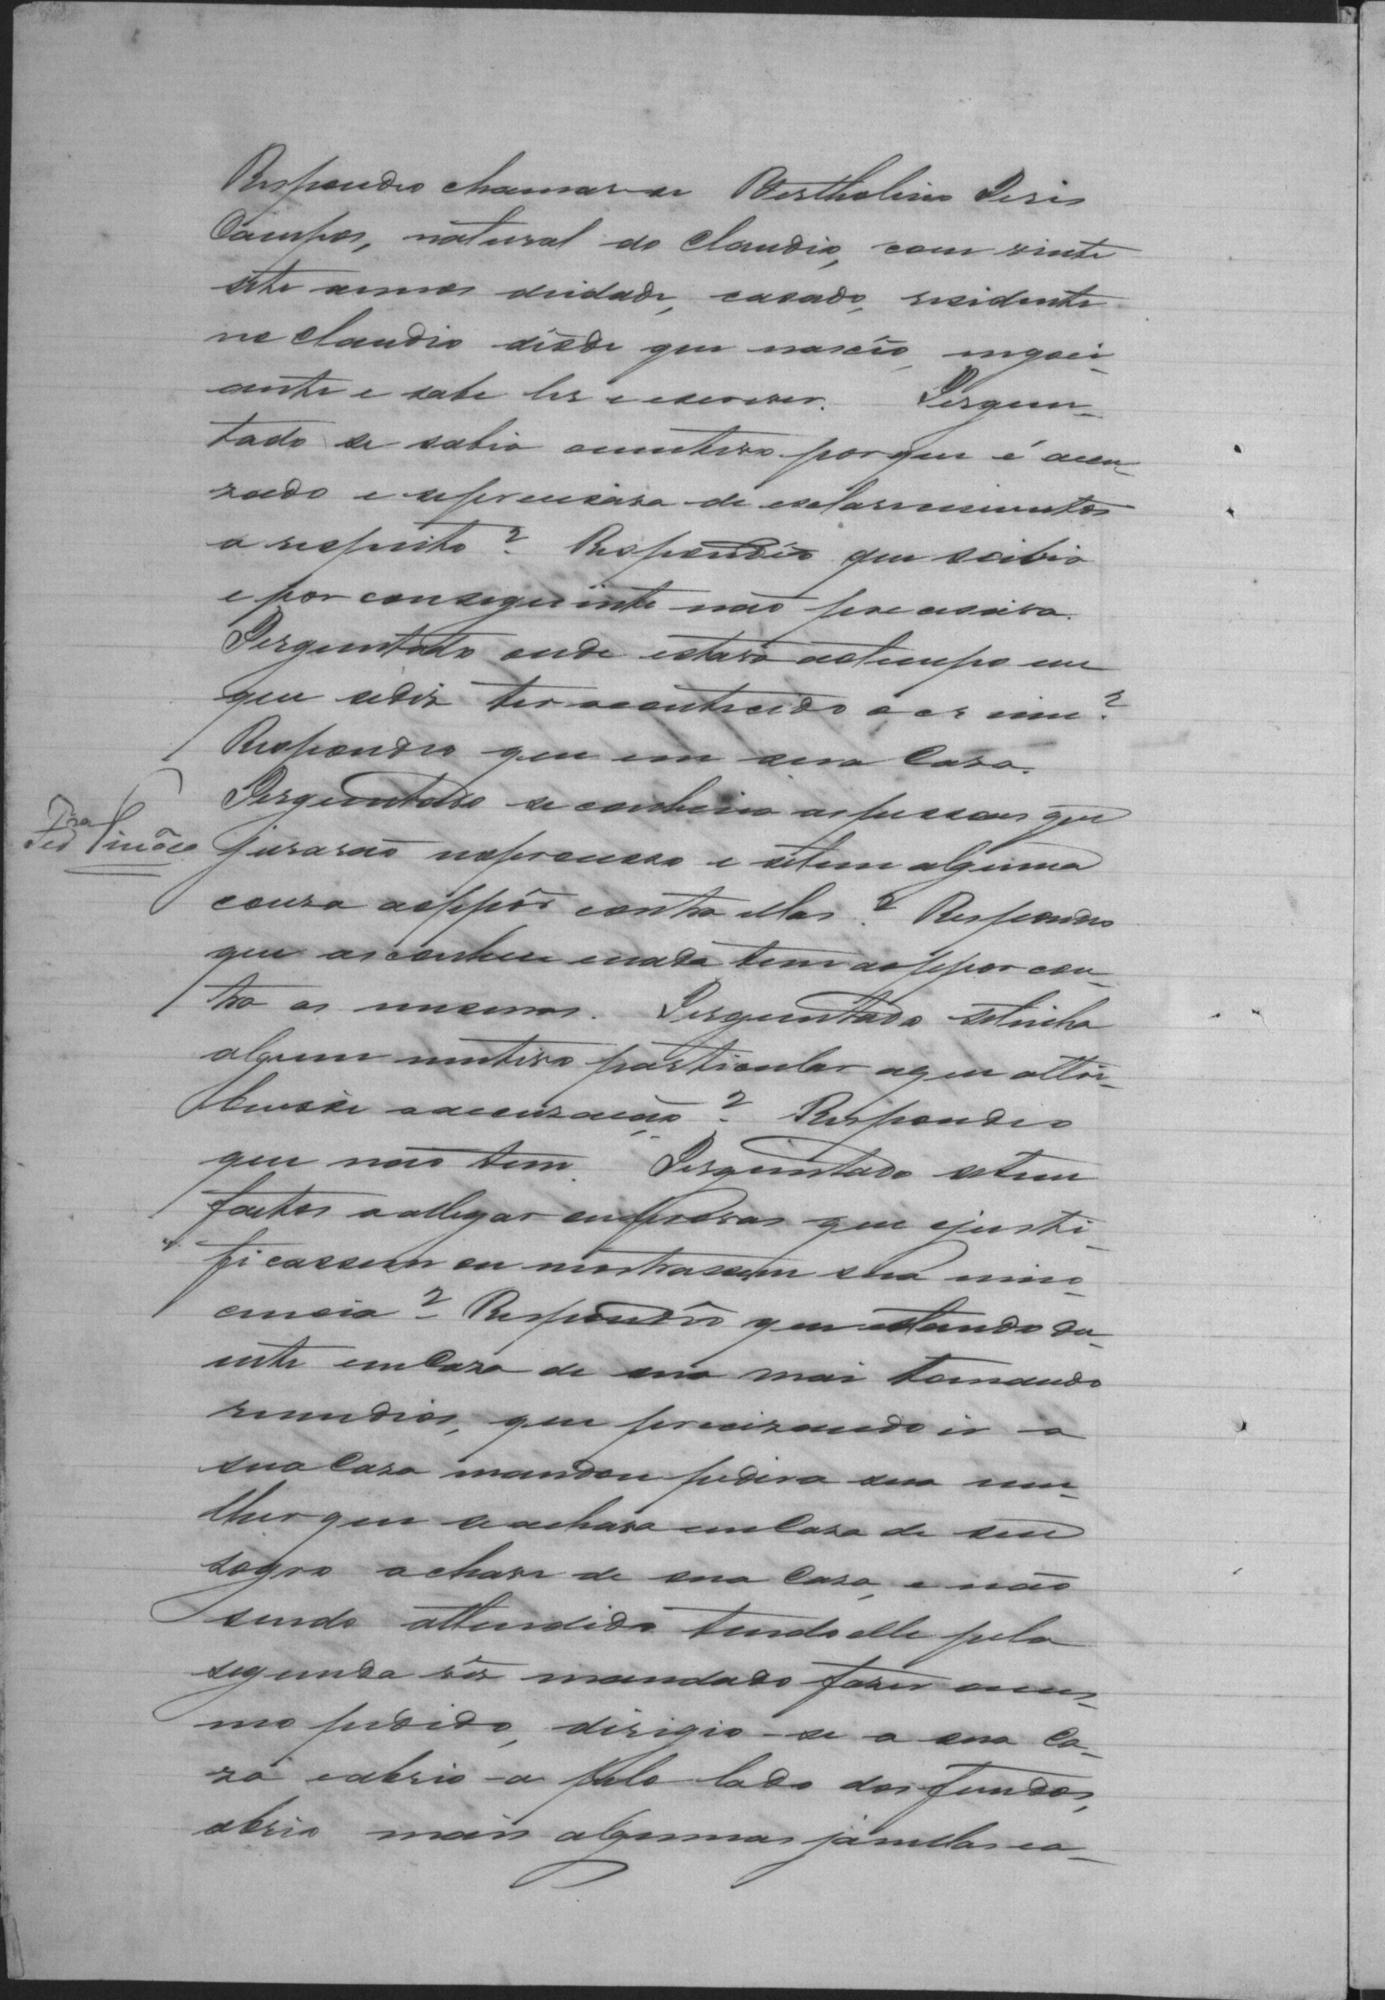 Respondeo chamar-se Bertholino Peris
Campos, natural do Claudio, com vinte
sete annos deidade, casado, residente
no Claudio desde que nasceo, negoci-
ante e sabe ler e escrever. Pergun-
tado se sabia omutivo porque é acu-
zado e seprecisava de esclarecimentos
a respeito? Respondeo que sabia
e por conseguinte não precisava.
Perguntado onde estava aotempo em
que sediz ter acontecido o crime?
Respondeo que em sua Caza.
Perguntado se conhecia aspessoas que
jurarão noprocesso e setem alguma
couza aoppôr contra ellas? Respondeo
que asconhece enada tem aoppor con-
tra as mesmas. Perguntado setinha
algum mutivo particular aque attri-
buisse aaccuzação? Respondeo
que não tem. Perguntado setem
factos aallegar ouprovas que ojusti-
ficassem ou mostrassem sua inno-
cencia? Respondeo que estando do-
ente emCaza de sua mai tomando
remedios, que precizando ir a
sua Caza mandou pedira sua mu-
lher que seachava emCaza de seu
sogro achave de sua Caza, e não
sendo attendido tendo elle pela
segunda vez mandado fazer omes-
mo pedido, dirigio-se a sua Ca-
za eabrio-a pelo lado dos fundos,
abrio mais algumas janellas ea-